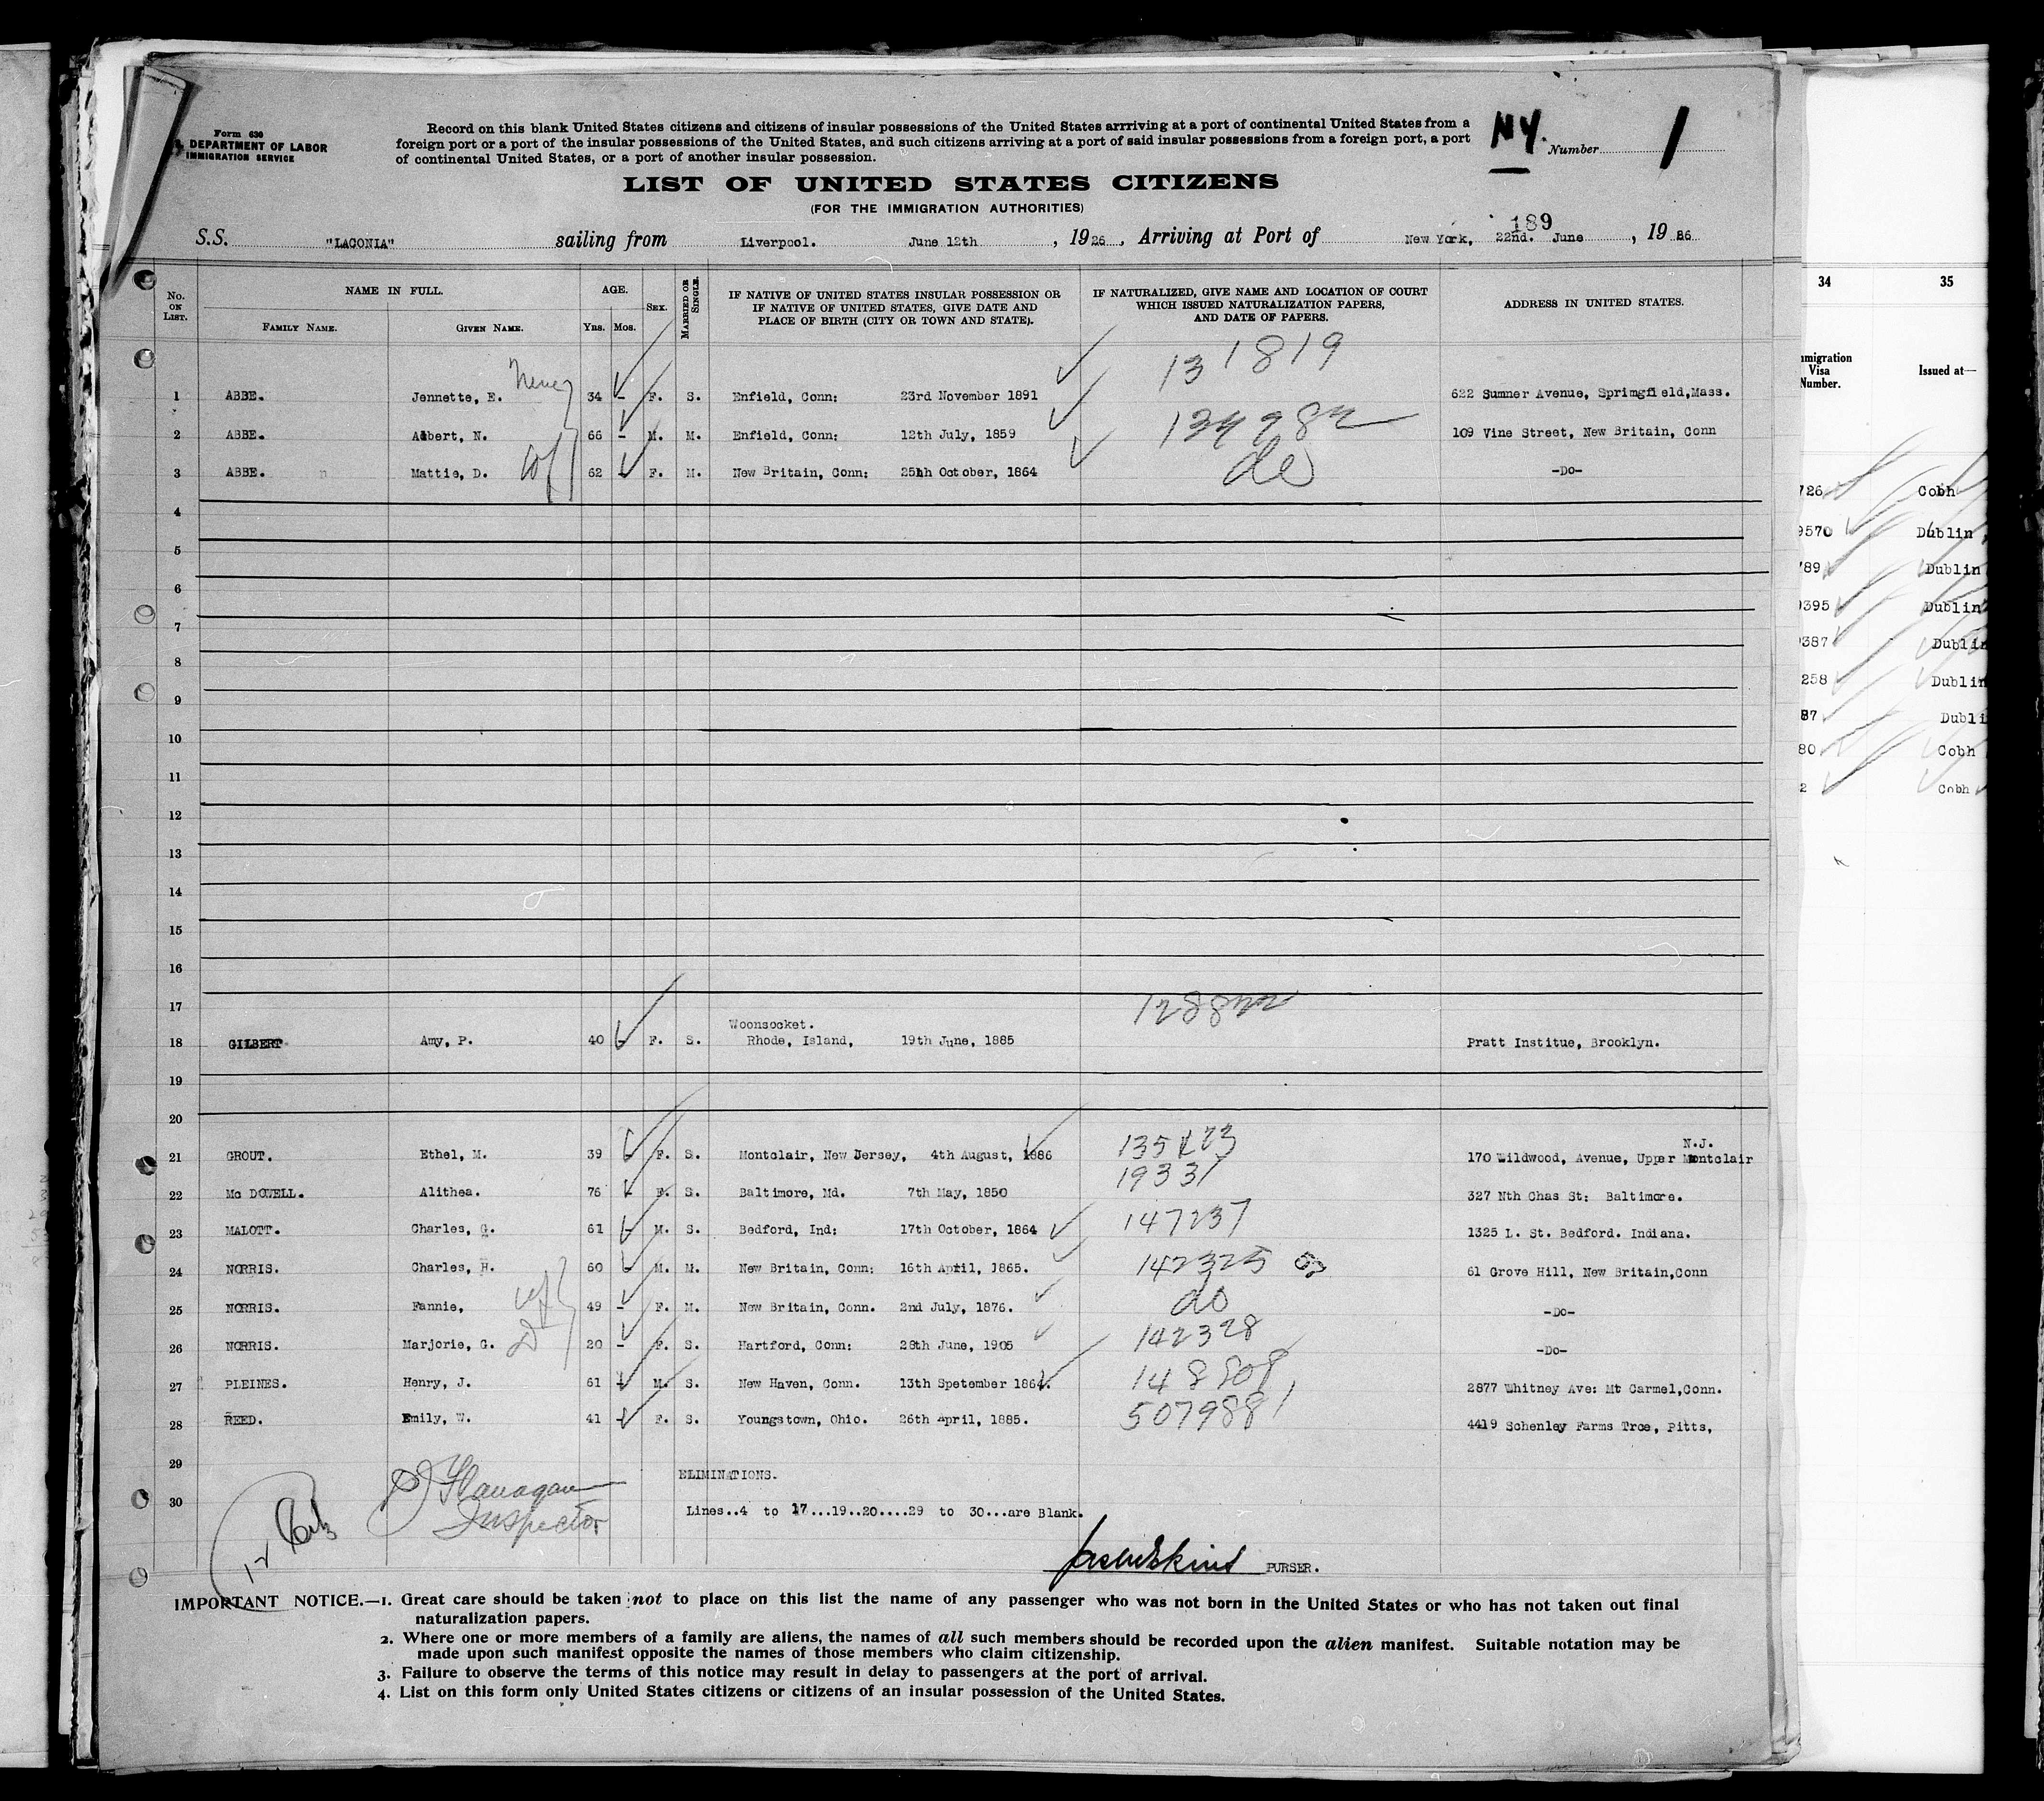 Form 630
DEPARTMENT OF LABOR
IMMIGRATION SERVICE
Record on this blank United States citizens and citizens of insular possessions of the United States arrriving at a port of continental United States from a
foreign port or a port of the insular possessions of the United States, and such citizens arriving at a port of said insular possessions from a foreign port, a port
of continental United States, or a port of another insular possession.
NY. Number 1
LIST OF UNITED STATES CITIZENS
(FOR THE IMMIGRATION AUTHORITIES)
189
S.S. "LACONIA" sailing from Liverpool. June 12th, 1926, Arriving at Port of New York, 22nd. June, 19 26
No. ON LIST.
NAME IN FULL.
FAMILY NAME. GIVEN NAME.
AGE.
Yrs. Mos.
SEX.
MARRIED OR SINGLE.
IF NATIVE OF UNITED STATES INSULAR POSSESSION OR
IF NATIVE OF UNITED STATES, GIVE DATE AND
PLACE OF BIRTH (CITY OR TOWN AND STATE).
IF NATURALIZED, GIVE NAME AND LOCATION OF COURT
WHICH ISSUED NATURALIZATION PAPERS,
AND DATE OF PAPERS.
ADDRESS IN UNITED STATES.
131819
1 ABBE. Jennette, E. 34 - F. S. Enfield, Conn: 23rd November 1891 622 Sumner Avenue, Springfield,Mass.
2 ABBE. Albert, N. 66 - M. M. Enfield, Conn: 12th July, 1859 109 Vine Street, New Britain, Conn
3 ABBE. Mattie, D. 62 - F. M. New Britain, Conn: 25th October, 1864 do -Do-
4
5
6
7
8
9
10
11
12
13
14
15
16
17
Woonsocket.
18 GILBERT Amy, P. 40 - F. S. Rhode, Island, 19th June, 1885 Pratt Institue, Brooklyn.
19
20
N.J.
21 GROUT. Ethel, M. 39 - F. S. Montclair, New Jersey, 4th August, 1886 170 Wildwood, Avenue, Upper Montclair
22 Mc DOWELL. Alithea. 76 - F. S. Baltimore, Md. 7th May, 1850 19331 327 Nth Chas St: Baltimore.
23 MALOTT. Charles, G. 61 - M. S. Bedford, Ind: 17th October, 1864 147237 1325 L. St. Bedford. Indiana.
24 NORRIS. Charles, H. 60 - M. M. New Britain, Conn: 16th April, 1865. 142325 61 Grove Hill, New Britain,Conn
25 NORRIS. Fannie, 49 - F. M. New Britain, Conn. 2nd July, 1876. do -Do-
26 NORRIS. Marjorie, G. 20 - F. S. Hartford, Conn: 28th June, 1905 142328 -Do-
27 PLEINES. Henry, J. 61 - M. S. New Haven, Conn. 13th Spetember 1864. 148808 2877 Whitney Ave: Mt Carmel,Conn.
28 REED. Emily, W. 41 - F. S. Youngstown, Ohio. 26th April, 1885. 507988 4419 Schenley Farms Trce, Pitts,
29 ELIMINATIONS.
Flanagan
Inspector
30 Lines..4 to 17...19..20....29 to 30...are Blank.
PURSER.
IMPORTANT NOTICE.—1. Great care should be taken not to place on this list the name of any passenger who was not born in the United States or who has not taken out final
naturalization papers.
2. Where one or more members of a family are aliens, the names of all such members should be recorded upon the alien manifest. Suitable notation may be
made upon such manifest opposite the names of those members who claim citizenship.
3. Failure to observe the terms of this notice may result in delay to passengers at the port of arrival.
4. List on this form only United States citizens or citizens of an insular possession of the United States.
34 35
Visa
Number.
Issued at—
726 Cobh
9570 Dublin
789 Dublin
395 Dublin
387 Dublin
258 Dublin
87 Dubli
80 Cobh
2 Cobh